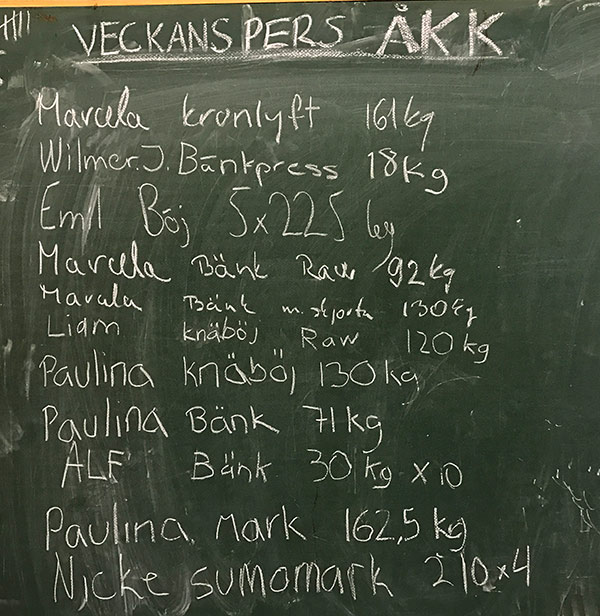 VECKANS PERS ÅKK
Marcela kronlyft 161kg
Wilmer.J. Bänkpress 18Kg
Emil Böj 5x225 kg
Marcela Bänk Raw 92kg
Marcela Bänk m.skjorta 130kg
Liam knäböj Raw 120kg
Paulina knäböj 130kg
Paulina Bänk 71kg
ALF Bänk 30kg x10
Paulina. Mark 162,5kg
Nicke sumomark 210x4